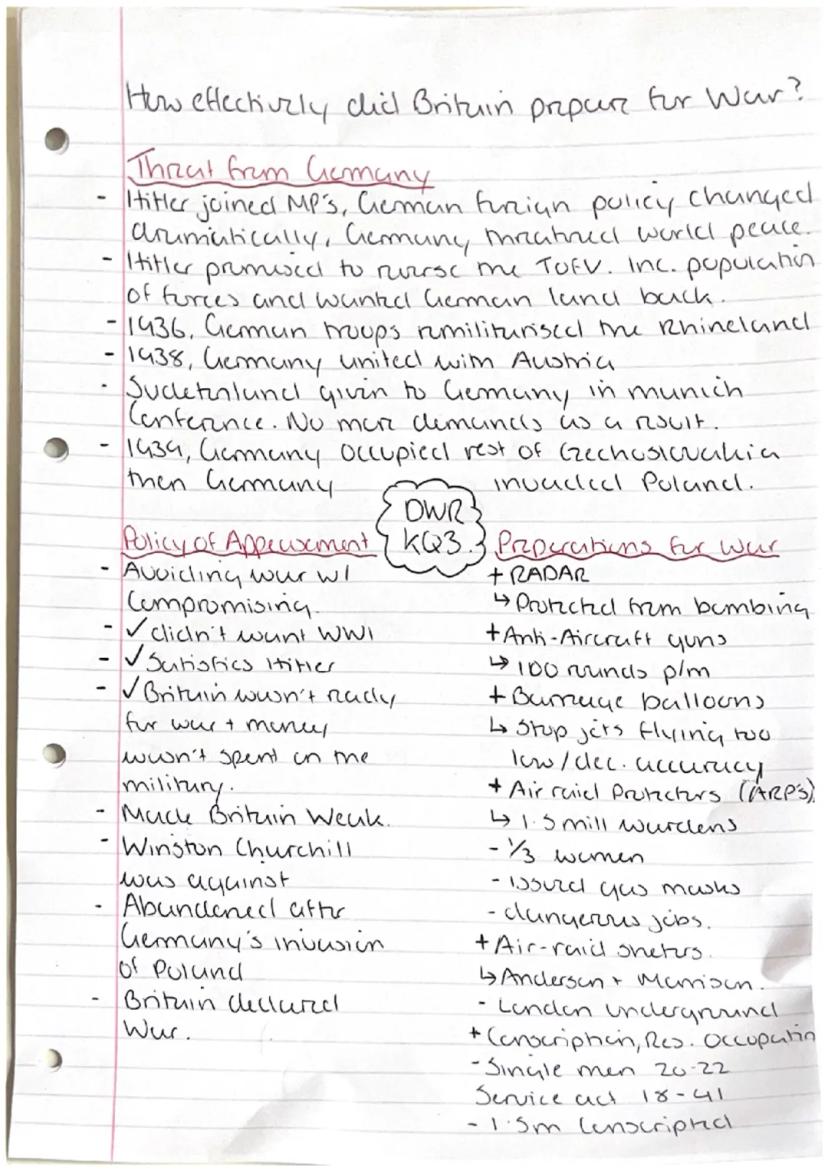 How effectively did Britain prepare for War?
Threat from Germany
- Hitler joined MP's, German foreign policy changed
dramatically, Germany threatened world peace.
- Hitler promised to reverse the TOFV. Inc. population
of forces and wanted German land back.
- 1936, German troops remilitarised the Rhineland
- 1938, Germany united with Austria
- Sudetenland given to Germany in munich
Conference. No more demands as a result.
- 1939, Germany occupied rest of Czechoslovakia
then Germany invaded Poland.
DWR
KQ3.
Policy of Appeasement
- Avoiding war w/
Compromising.
- ✓ didn't want WW1
- ✓ Satisfies Hitler
- ✓ Britain wasn't ready
for war + money
wasn't spent on the
military.
- Made Britain Weak.
- Winston Churchill
was against
- Abandoned after
Germany's invasion
of Poland
- Britain declared
War.
Preparations for war
+ RADAR
↳ Protected from bombing
+ Anti-Aircraft guns
↳ 100 rounds p/m
+ Barrage balloons
↳ Stop jets flying too
low/dec. accuracy
+ Air raid Protectors (ARP's)
↳ 1.5 mill wardens
- 1/3 women
- issued gas masks
- dangerous jobs.
+ Air-raid shelters.
↳ Anderson + Morrison.
- London underground
+ Conscription, Res. Occupation
- Single men 20-22
Service act 18-41
- 1.5m Conscripted